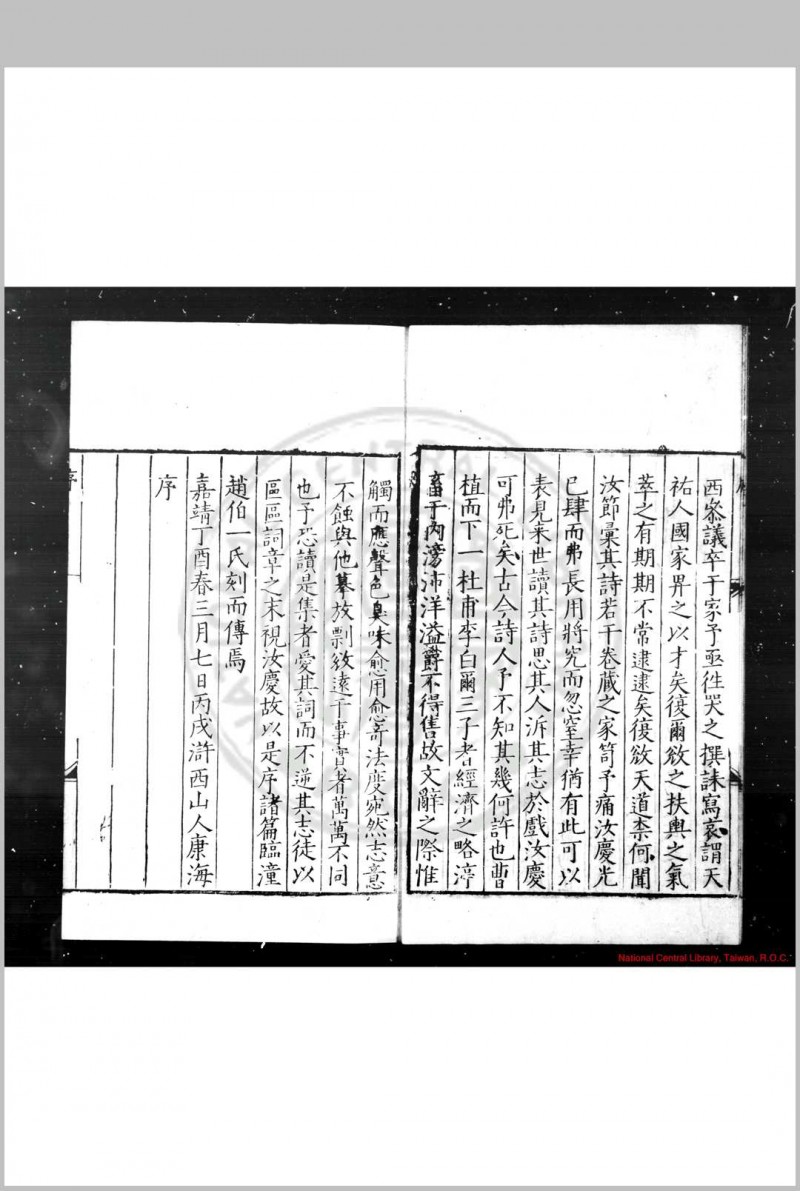 西叅議卒于家予亟徃哭之撰誄寫哀謂天
祐人國家畀之以才矣復爾欲之扶輿之氣
萃之有期期不常逮逮矣復欲天道柰何聞
汝節彙其詩若干卷蔵之家笥予痛汝慶光
已肆而弗長用將究而忽窒幸猶有此可以
表見来世讀其詩思其人泝其志於戲汝慶
可弗死矣古今詩人予不知其幾何許也曹
植而下一杜甫李白爾三子者經濟之略渟
畜于內滂沛洋溢欝不得售故文辭之際惟
觸而應聲色臭味愈用愈竒法度宛然志意
不蝕與他摹放剽敚遠于事實者萬萬不同
也予恐讀是集者愛其詞而不逆其志徒以
區區詞章之末視汝慶故以是序諸篇臨潼
趙伯一氏刻而傳焉
嘉靖丁酉春三月七日丙戌滸西山人康海
序
序
National Central Library, Taiwan, R.O.C.